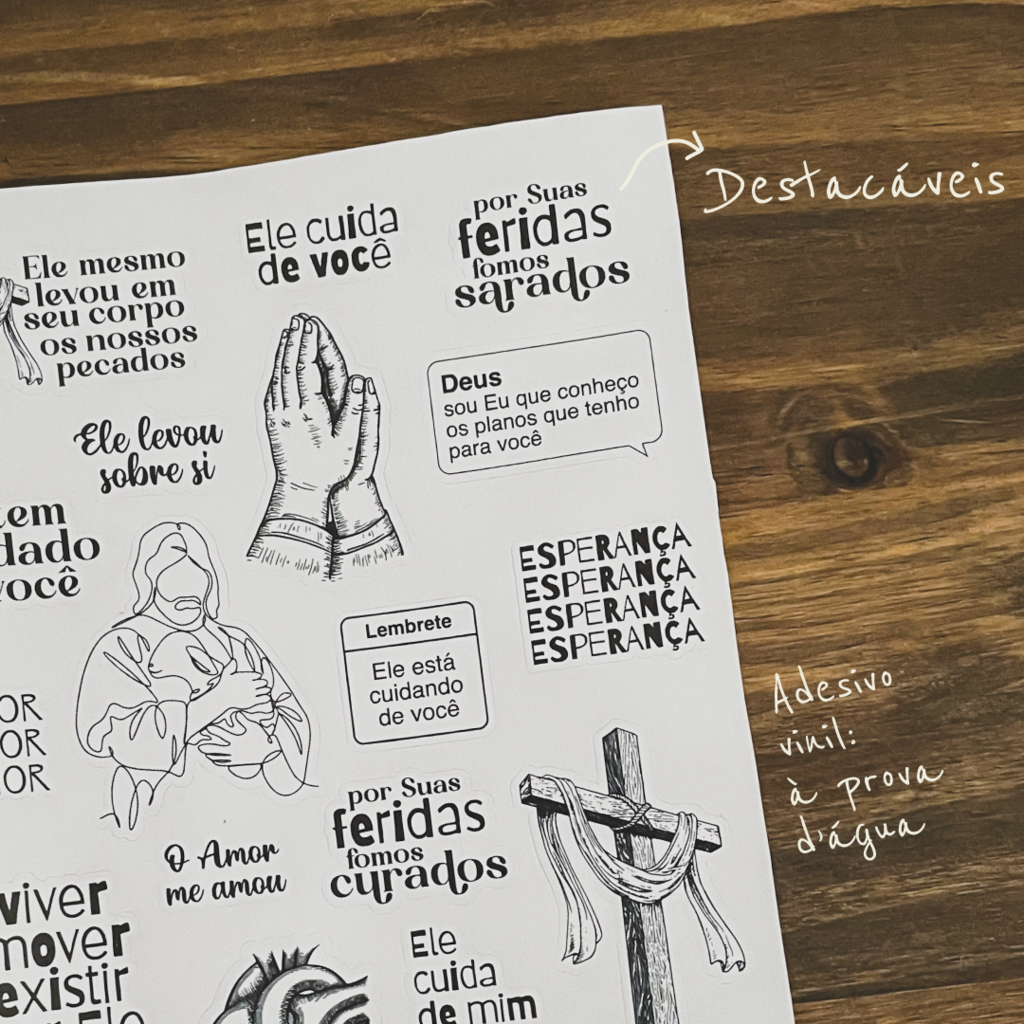 Destacáveis
Ele cuida
de você
por Suas
feridas
fomos
sarados
Ele mesmo
levou em
seu corpo
os nossos
pecados
Deus
sou Eu que conheço
os planos que tenho
para você
Ele levou
sobre si
você
ESPERANÇA
ESPERANÇA
ESPERANÇA
ESPERANÇA
Lembrete
Ele está
cuidando
de você
Adesivo
vinil:
à prova
d'água
por Suas
feridas
fomos
curados
O Amor
me amou
viver
mover
existir
Ele
Ele
cuida
de mim